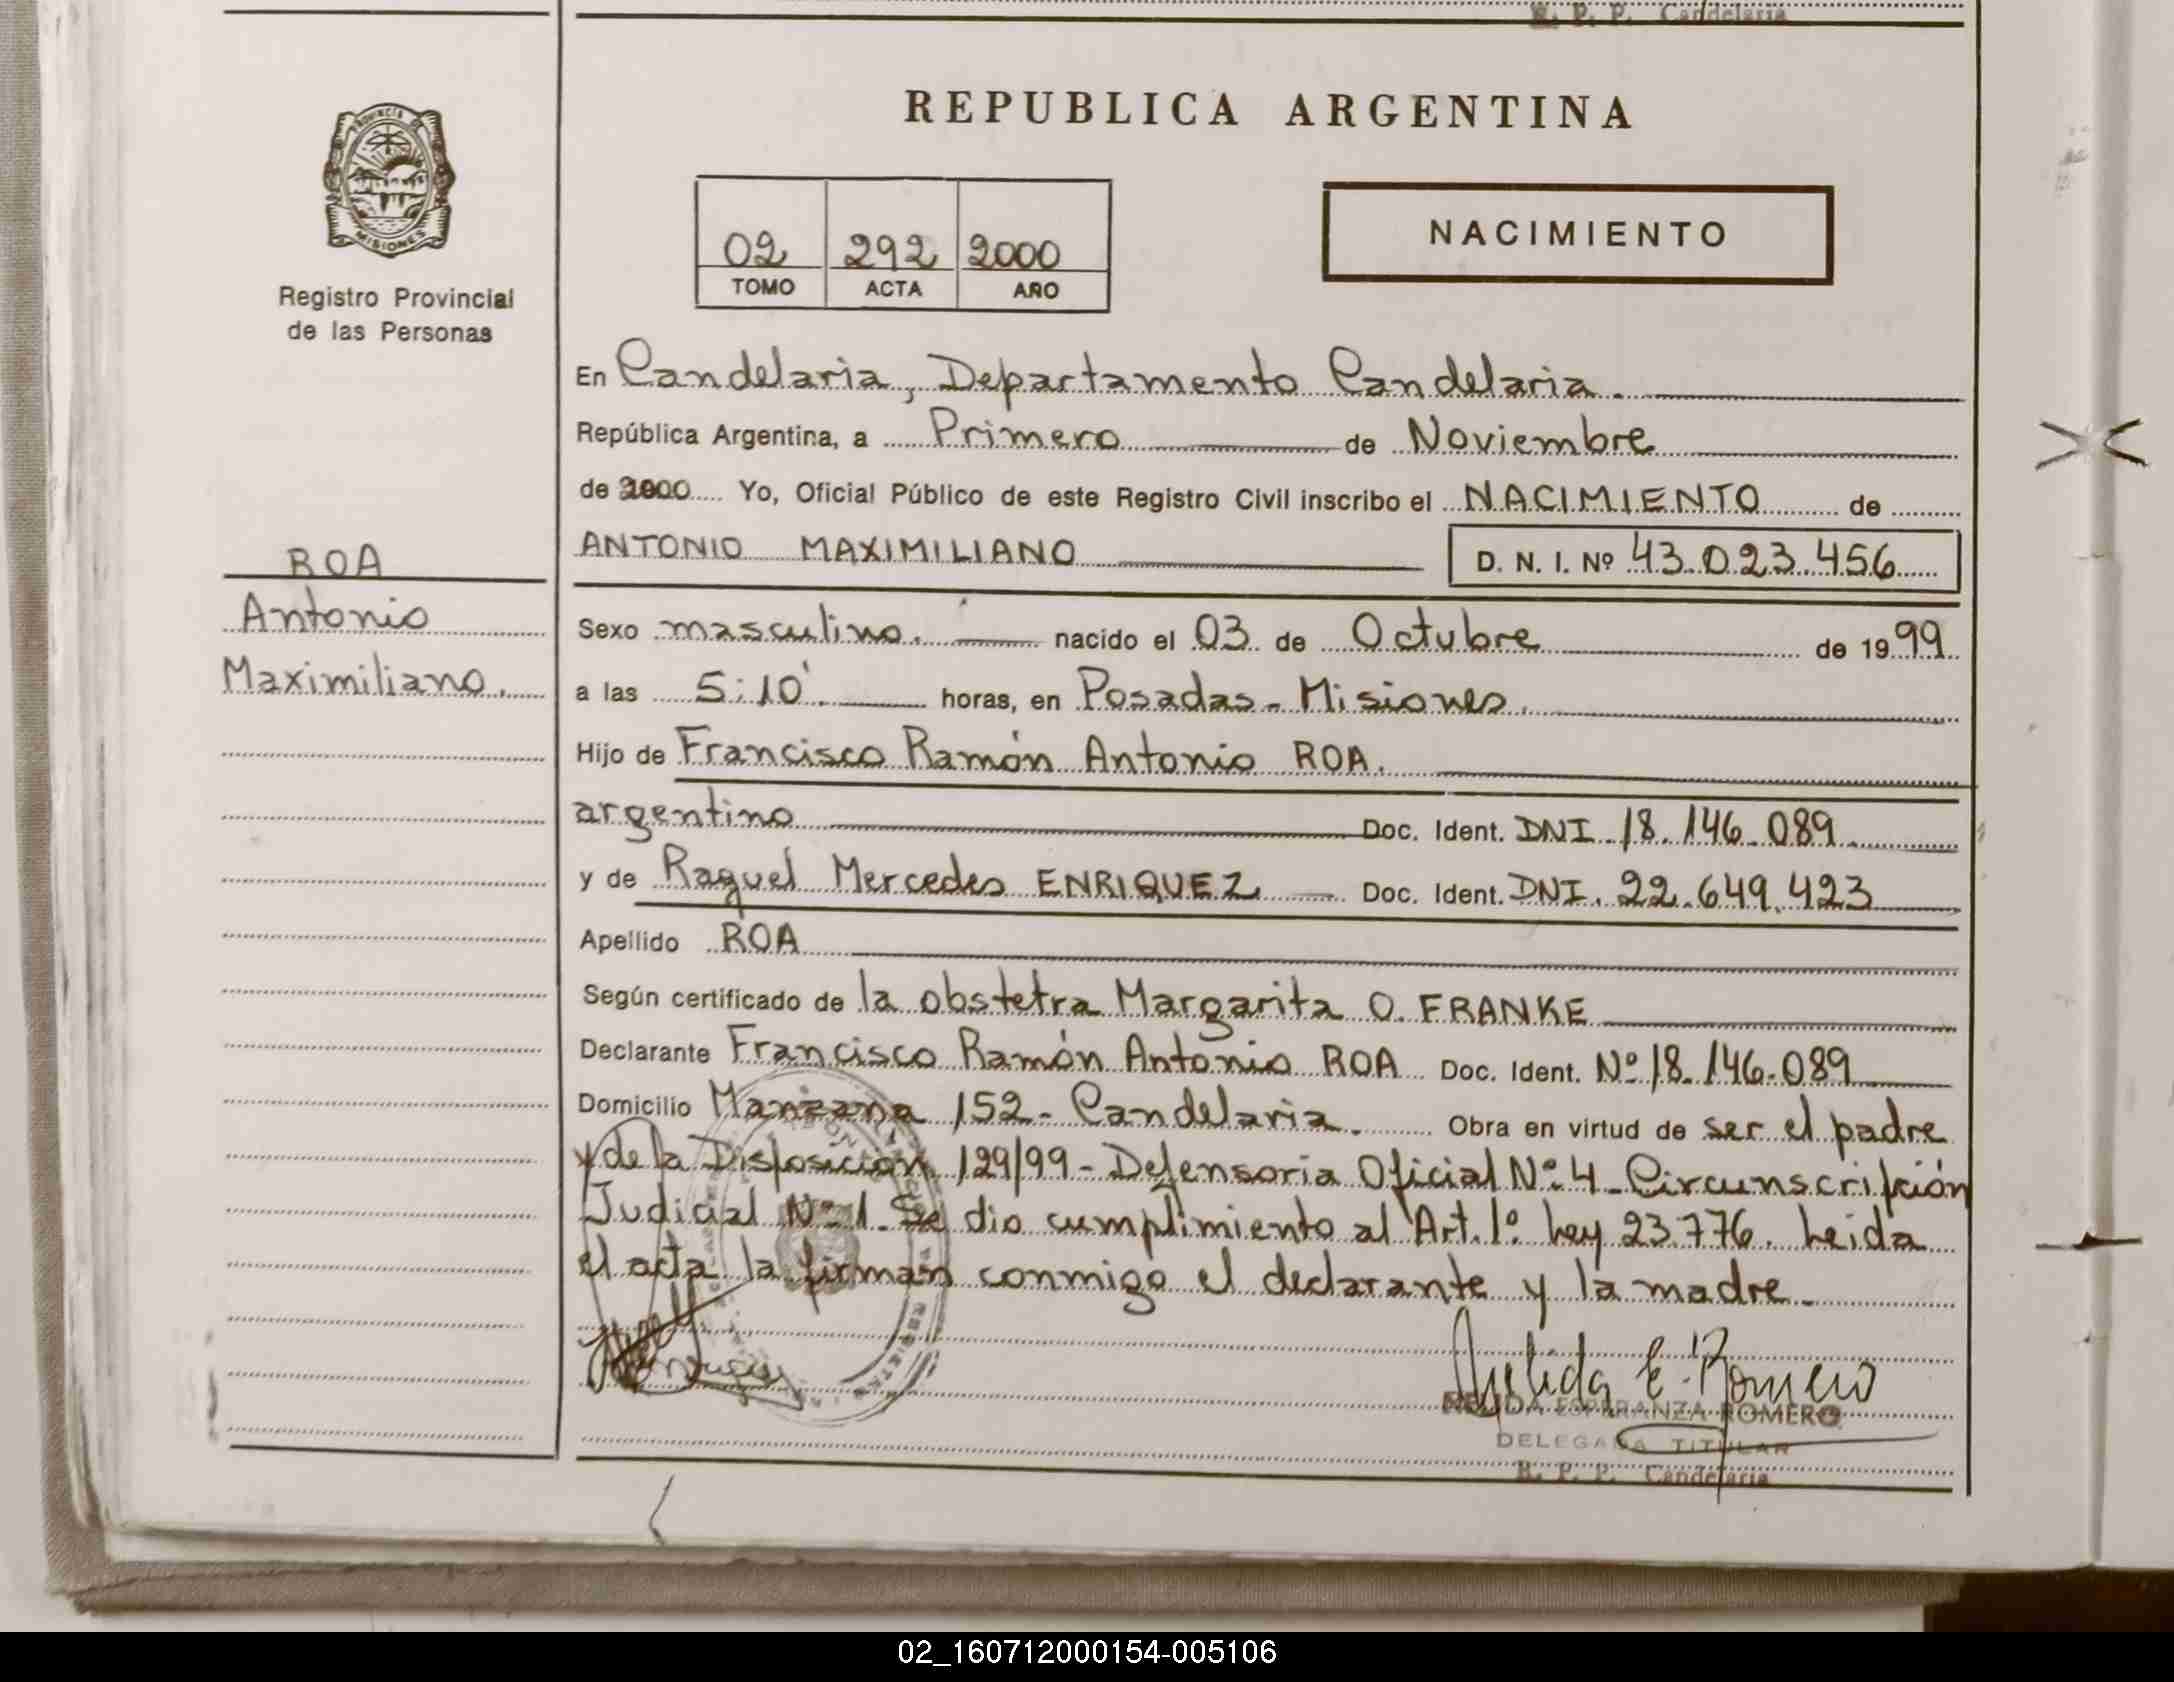 R. P. P. Candelaria
PROVINCIA DE
MISIONES
Registro Provincial
de las Personas
ROA
Antonio
Maximiliano.
REPUBLICA ARGENTINA
02 292 2000
TOMO ACTA AÑO
NACIMIENTO
En Candelaria, Departamento Candelaria.
República Argentina, a Primero de Noviembre
de 2000 Yo, Oficial Público de este Registro Civil inscribo el NACIMIENTO de
ANTONIO MAXIMILIANO D. N. I. Nº 43.023.456
Sexo masculino. nacido el 03 de Octubre de 1999
a las 5:10'. horas, en Posadas - Misiones.
Hijo de Francisco Ramón Antonio ROA.
argentino Doc. Ident. DNI. 18.146.089
y de Raquel Mercedes ENRIQUEZ Doc. Ident. DNI. 22.649.423
Apellido ROA
Según certificado de la obstetra Margarita O. FRANKE
Declarante Francisco Ramón Antonio ROA Doc. Ident. Nº 18.146.089
Domicilio Manzana 152 - Candelaria. Obra en virtud de ser el padre
y de la Disposición 129/99 - Defensoria Oficial Nº 4 - Circunscripción
Judicial Nº 1. Se dio cumplimiento al Art. 1º Ley 23.776. Leida
el acta la firman conmigo el declarante y la madre.
Nelida E. Romero
NELIDA ESPERANZA ROMERO
DELEGADA TITULAR
R. P. P. Candelaria
02_160712000154-005106